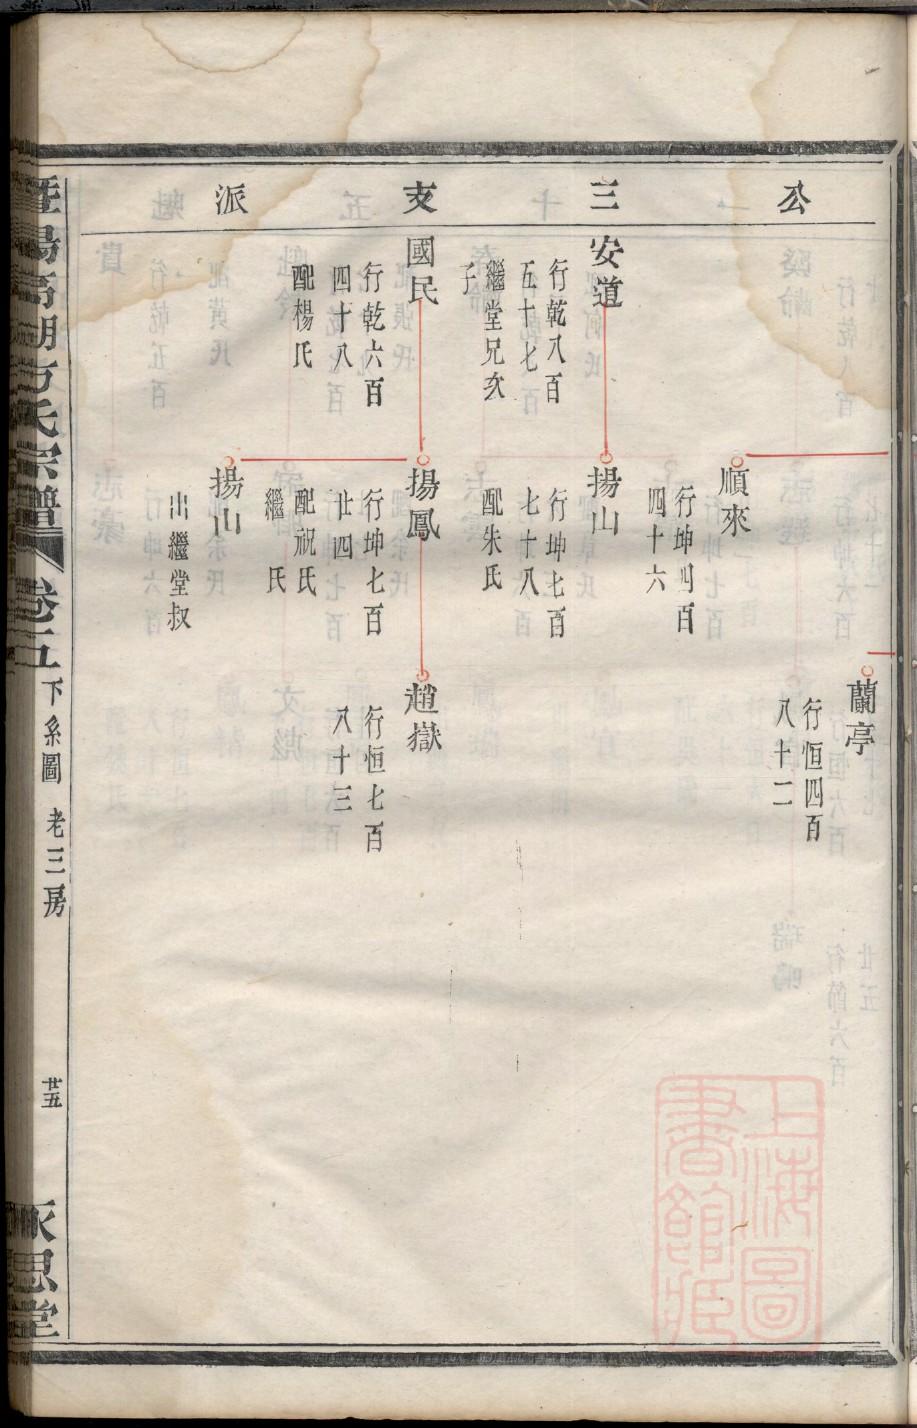 公三支派
蘭亭
行恒四百
八十二
順來
行坤四百
四十六
安道
行乾八百
五十七
繼堂兄次
子
揚山
行坤七百
七十八
配朱氏
國民
行乾六百
四十八
配楊氏
揚鳳
行坤七百
廿四
配祝氏
繼　氏
趙嶽
行恒七百
八十三
揚山
出繼堂叔
暨陽高湖方氏宗譜
卷二五
下系圖
老三房
廿五
永思堂
上海圖
書館藏